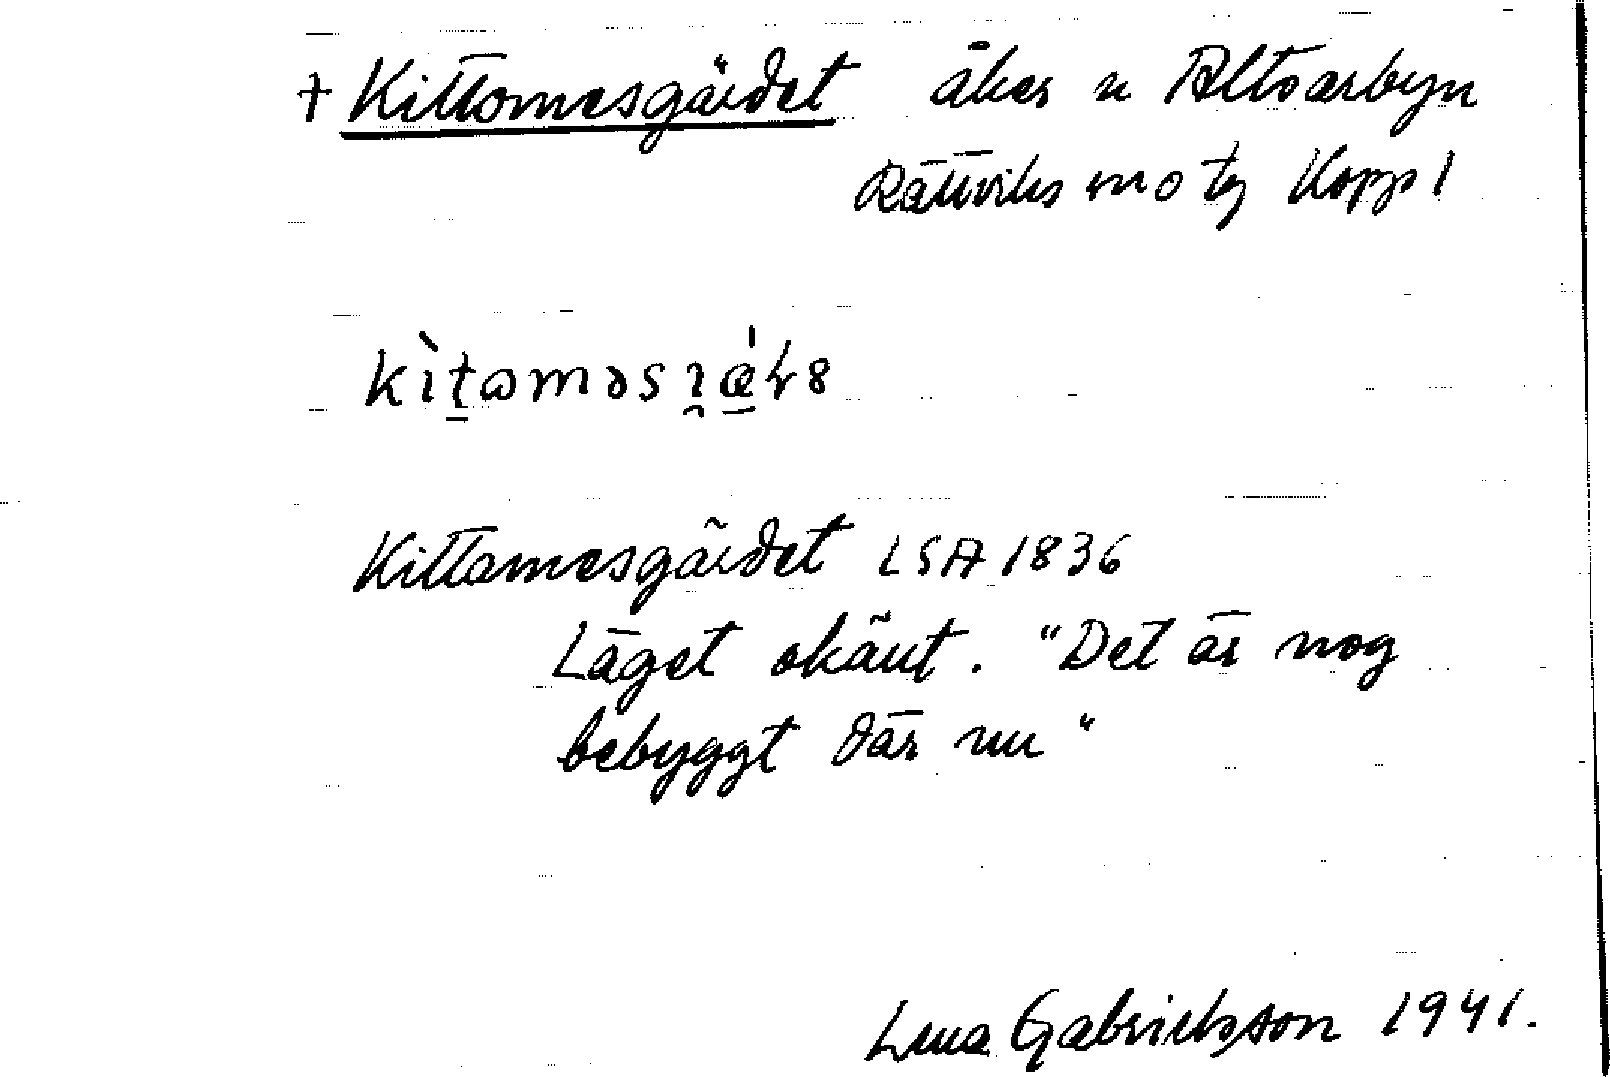 + Kittomesgärdet åker n Altsarbyn
Rättviks sn o tg Kopp l
Kittamesgärdet LSA 1836
Läget okänt. "Det är nog
bebyggt där nu"
Lena Gabrielsson 1941.